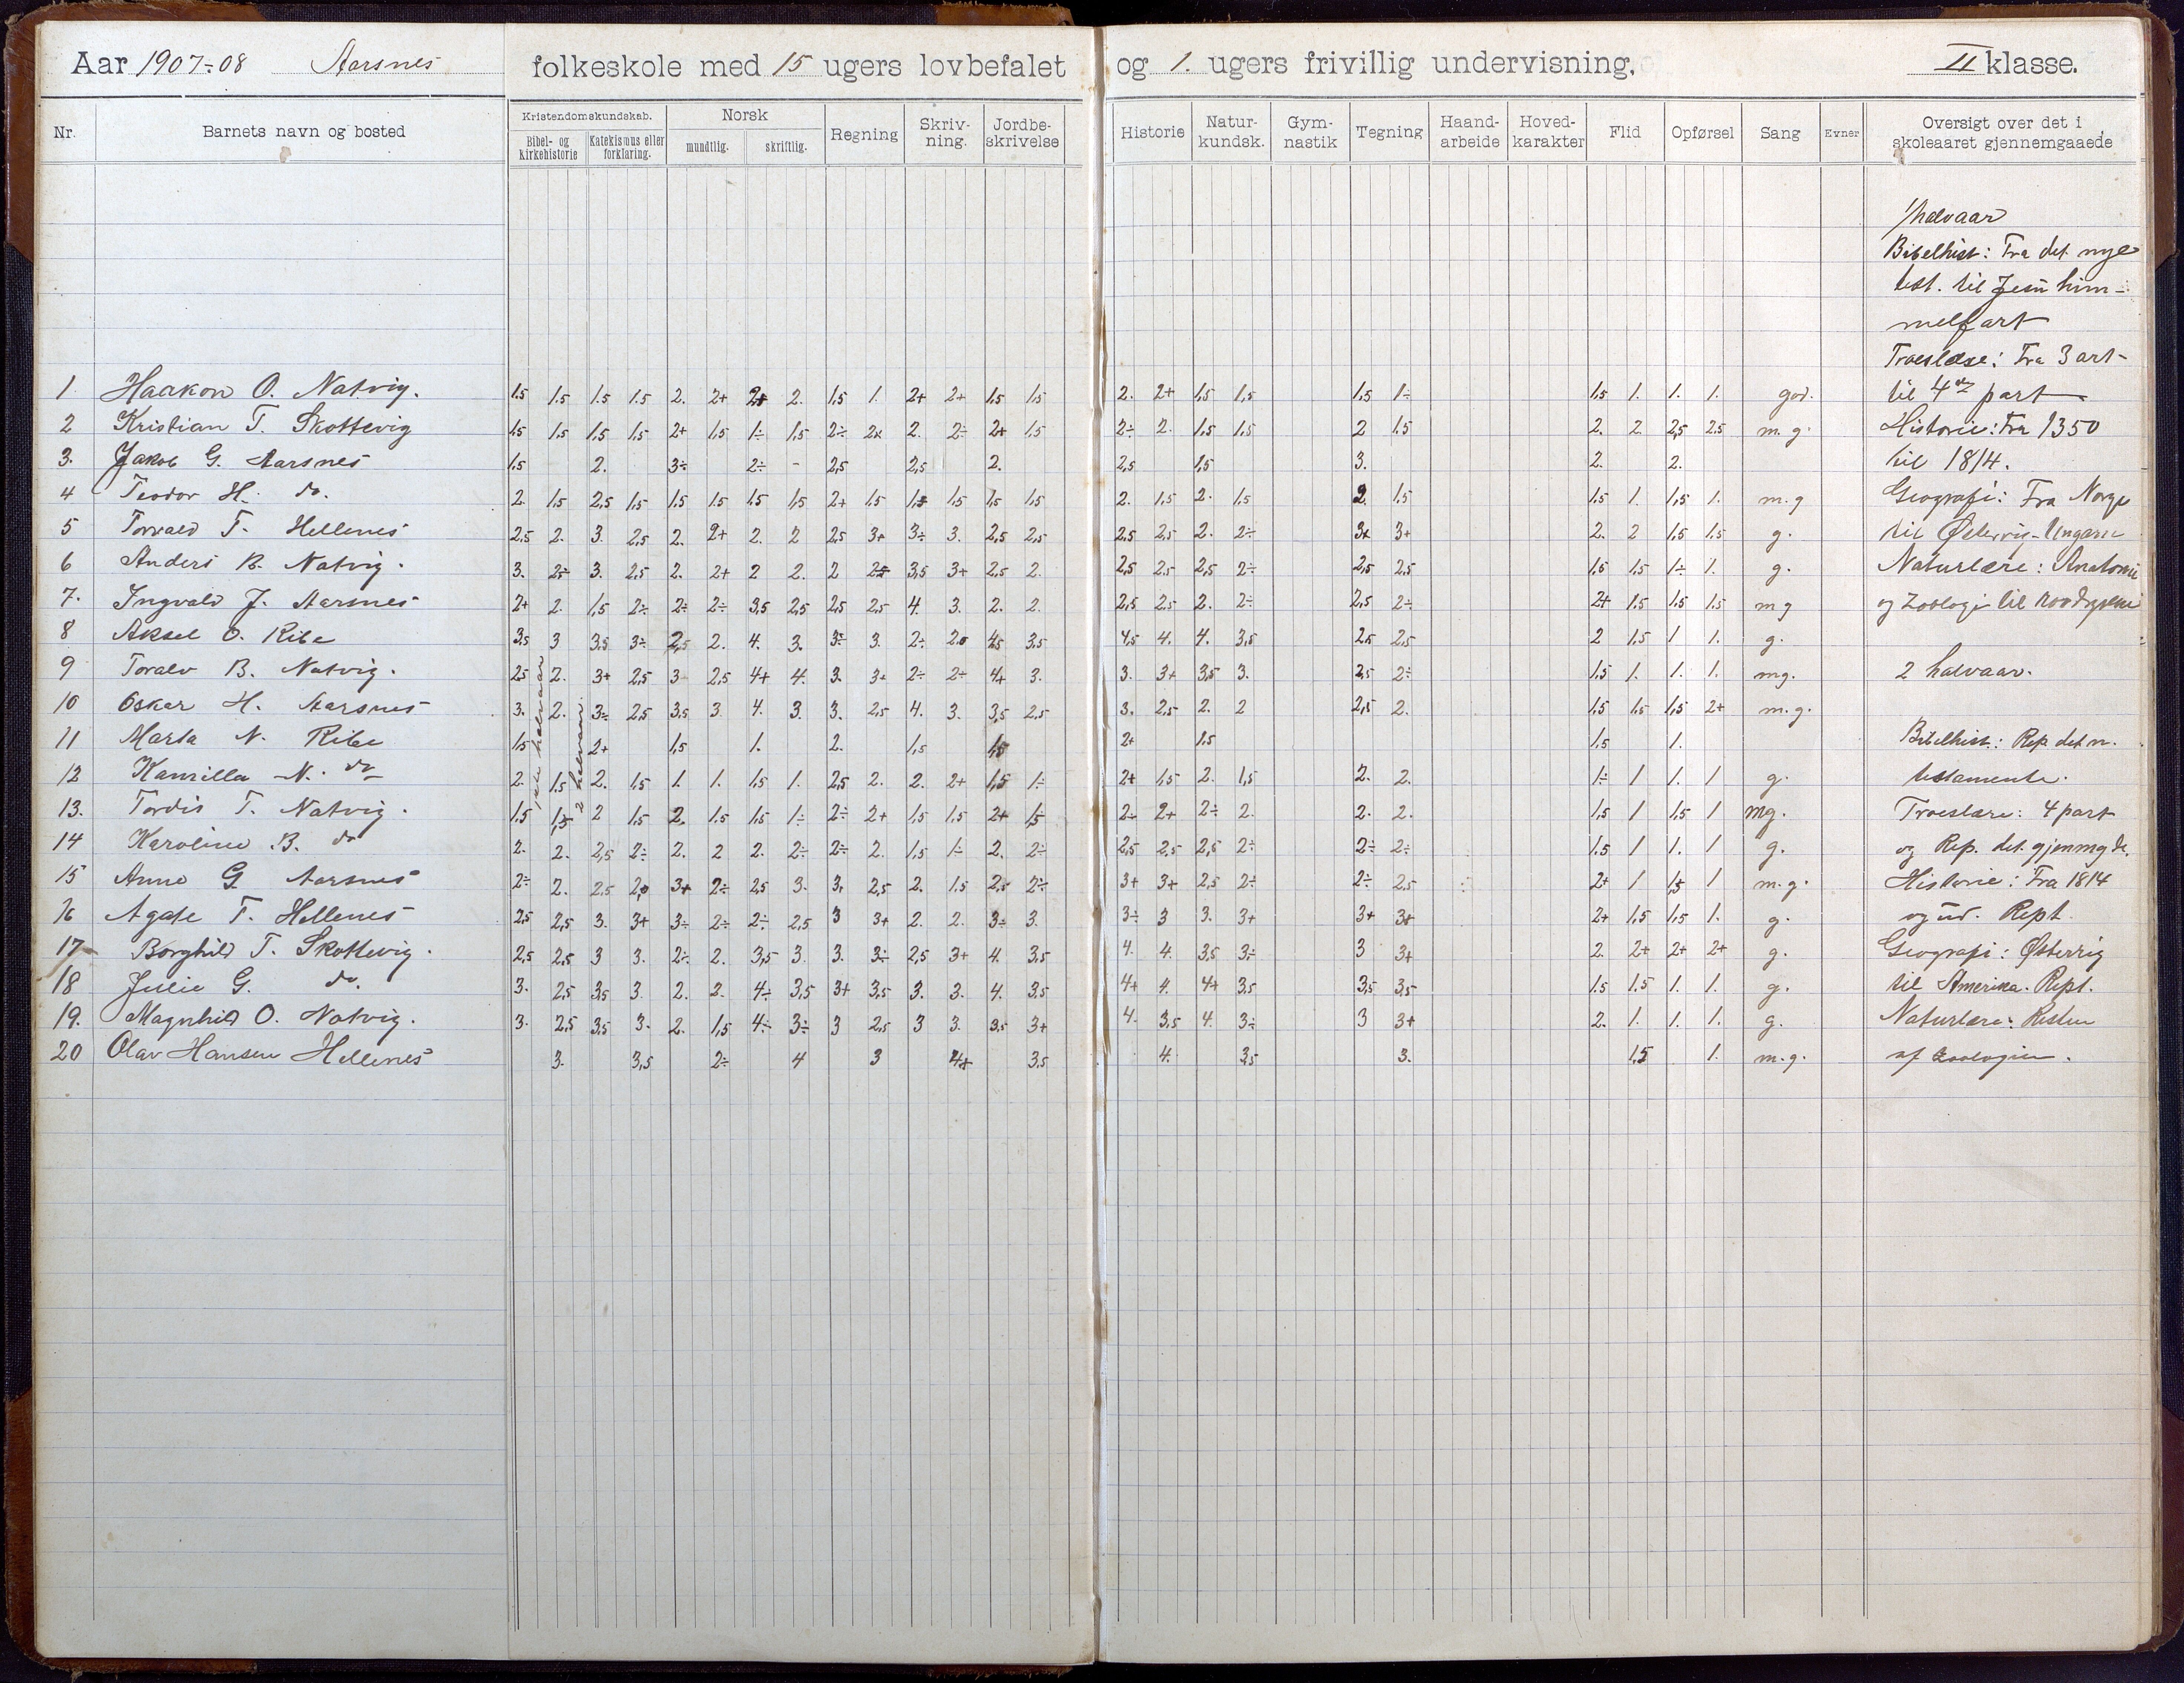 Aar 1907-08 Aarsnes folkeskole med 15 ugers lovbefalet og 1. ugers frivillig undervisning, II klasse.
Nr. Barnets navn og bosted Kristendomskundskab. Bibel- og Kirkehistorie Katekismus eller forklaring. Norsk mundtlig. skriftlig. Regning Skriv-ning. Jordbe-skrivelse Historie Natur-kundsk. Gym-nastik Tegning Haand-arbeide Hoved-karakter Flid Opførsel Sang Evner Oversigt over det i skoleaaret gjennemgaaede
1 halvaar
Bibelhist: Fra det nye
test. til Jesu him-
melfart
Troeslære: Fra 3 art-
1 Haakon O. Natvig. 1.5 1.5 1.5 1.5 2. 2+ 2+ 2. 1.5 1. 2+ 2+ 1.5 1.5 2. 2+ 1.5 1.5 1.5 1÷ 1.5 1. 1. 1. god. til 4de part
2 Kristian T. Skottevig 1.5 1.5 1.5 1.5 2+ 1.5 1÷ 1.5 2÷ 2x 2. 2÷ 2+ 1.5 2÷ 2. 1.5 1.5 2 1.5 2. 2 2,5 2.5 m.g. Historie: Fra 1350
3. Jakob G. Aarsnes 1.5 2. 3÷ 2÷ - 2,5 2,5 2. 2,5 1,5 3. 2. 2. til 1814.
4 Teodor H. do. 2. 1.5 2,5 1,5 1.5 1.5 1.5 1,5 2+ 1.5 1,5 1.5 1,5 1.5 2. 1.5 2. 1.5 2 1.5 1.5 1 1,5 1. m.g Geografi: Fra Norge
5 Torvald T. Hellenes 2,5 2. 3. 2,5 2. 2+ 2. 2 2,5 3+ 3÷ 3. 2,5 2,5 2,5 2,5 2. 2÷ 3x 3+ 2. 2 1,5 1.5 g. til Østerrig-Ungarn
6 Anders B. Natvig. 3. 2÷ 3. 2,5 2. 2+ 2 2. 2 2,5 3,5 3+ 2,5 2. 2,5 2.5 2,5 2÷ 2,5 2,5 1,5 1,5 1÷ 1. g. Naturlære: Anatomi
7. Ingvald J. Aarsnes 2+ 2. 1,5 2÷ 2÷ 2÷ 3,5 2,5 2,5 2.5 4. 3. 2. 2. 2,5 2.5 2. 2÷ 2,5 2÷ 2+ 1.5 1.5 1.5 mg og Zoologi til
8 Aksel O. Ribe 3,5 3 3,5 3÷ 2,5 2. 4. 3. 3÷ 3. 2÷ 2.0 4,5 3,5 4,5 4. 4. 3,5 2,5 2,5 2 1.5 1 1. g.
9 Toralv B. Natvig. 2,5 2. 3+ 2,5 3 2,5 4+ 4. 3. 3+ 2÷ 2÷ 4+ 3. 3. 3+ 3,5 3. 2,5 2÷ 1.5 1. 1. 1. mg. 2 halvaar.
10 Oskar H. Aarsnes 3. 2. 3÷ 2,5 3,5 3 4. 3. 3. 2,5 4. 3. 3,5 2,5 3. 2,5 2. 2 2,5 2. 1.5 1.5 1,5 2+ m.g.
11 Marta N. Ribe 1.5 2+ 1.5 1. 2. 1,5 1,5 2+ 1.5 1.5 1. Bibelhist: Rep det n.
1ste halvaar 2 halvaar.
12 Kamilla N. do 2. 1.5 2. 1.5 1. 1. 1.5 1. 2,5 2. 2. 2+ 1,5 1÷ 2+ 1,5 2. 1,5 2. 2. 1÷ 1 1. 1 g. testamente.
13. Tordis T. Natvig. 1.5 1,5 2 1.5 2. 1.5 1.5 1÷ 2÷ 2+ 1,5 1.5 2+ 1,5 2- 2+ 2÷ 2. 2. 2. 1,5 1 1,5 1 mg. Troeslære: 4 part
14 Karoline B. do 2. 2. 2,5 2÷ 2. 2 2. 2÷ 2÷ 2. 1,5 1÷ 2. 2÷ 2,5 2,5 2,5 2÷ 2÷ 2÷ 1.5 1 1. 1 g. og Rep. det gjenmgde.
15 Anne G. Aarsnes 2÷ 2. 2,5 2,0 3+ 2÷ 2,5 3. 3. 2,5 2. 1.5 2,5 2÷ 3+ 3+ 2,5 2÷ 2÷ 2,5 2+ 1 1,5 1 m.g. Historie: Fra 1814
16 Agate T. Hellenes 2,5 2,5 3. 3+ 3÷ 2÷ 2÷ 2,5 3 3+ 2. 2. 3÷ 3. 3÷ 3 3. 3+ 3+ 3+ 2+ 1,5 1,5 1. g. og ud. Rept.
17 Borghild T. Skottevig. 2,5 2,5 3 3. 2÷ 2. 3,5 3. 3. 3÷ 2,5 3+ 4. 3,5 4. 4. 3,5 3÷ 3 3+ 2. 2+ 2+ 2+ g. Geografi: Østerrig
18 Julie G. do. 3. 2,5 3,5 3 2. 2. 4÷ 3,5 3+ 3,5 3. 3. 4. 3,5 4+ 4. 4+ 3,5 3,5 3,5 1.5 1.5 1. 1. g. til Amerika. Rept.
19. Magnhild O. Natvig. 3. 2,5 3,5 3. 2. 1,5 4÷ 3÷ 3 2,5 3 3. 3,5 3+ 4. 3,5 4. 3÷ 3 3+ 2. 1. 1. 1. g. Naturlære: Resten
20 Olav Hansen Hellenes 3. 3,5 2÷ 4 3 4+ 3,5 4. 3,5 3. 1.5 1. m.g. af Zoologien.